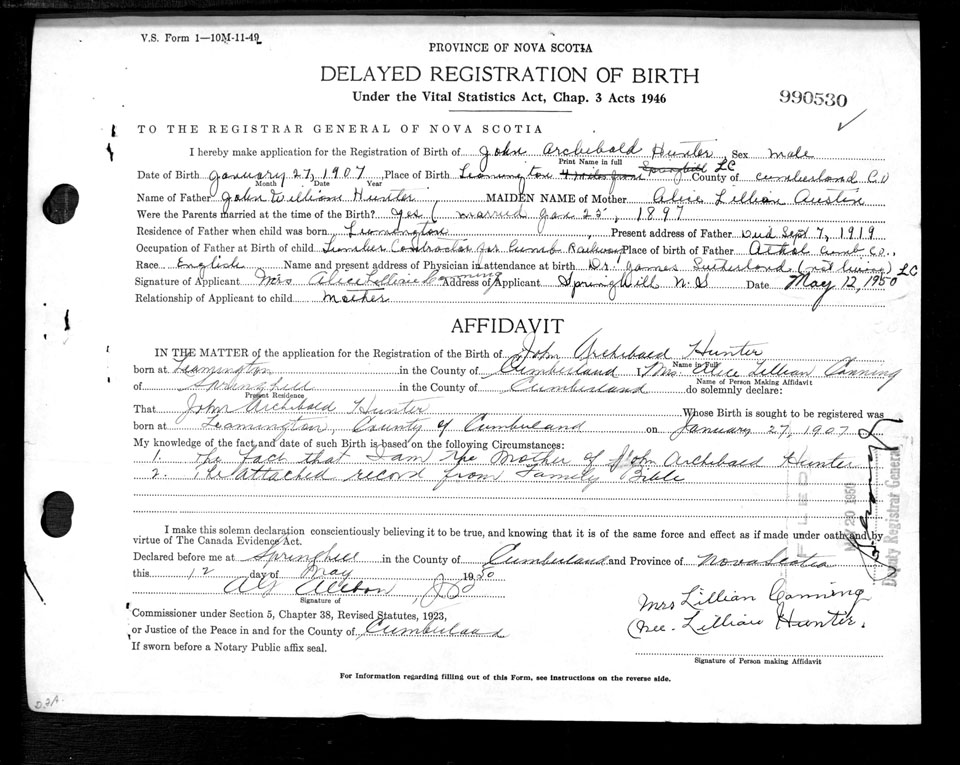 V.S. Form 1—10M-11-49
PROVINCE OF NOVA SCOTIA
DELAYED REGISTRATION OF BIRTH
Under the Vital Statistics Act, Chap. 3 Acts 1946
990530
TO THE REGISTRAR GENERAL OF NOVA SCOTIA
I hereby make application for the Registration of Birth of John Archibald Hunter Sex male
Print Name in full
Date of Birth January 27, 1907 Place of Birth Leamington 4 miles from Springhill LC County of Cumberland Co
Month Date Year
Name of Father John William Hunter MAIDEN NAME of Mother Alice Lillian Austin
Were the Parents married at the time of the Birth? Yes (married Jan 25, 1897
Residence of Father when child was born Leamington Present address of Father Died Sept 7, 1919
Occupation of Father at Birth of child Lumber Contractor for Cumb Railway Place of birth of Father Athol Cumb Co.,
Race English Name and present address of Physician in attendance at birth Dr. James Sutherland (not living) LC
Signature of Applicant Mrs Alice Lillian Canning Address of Applicant Springhill N.S Date May 12, 1950
Relationship of Applicant to child mother
AFFIDAVIT
IN THE MATTER of the application for the Registration of the Birth of John Archibald Hunter
Name in Full
born at Leamington in the County of Cumberland I, Mrs Alice Lillian Canning
Name of Person Making Affidavit
of Springhill in the County of Cumberland do solemnly declare:
Present Residence
That John Archibald Hunter Whose Birth is sought to be registered was
born at Leamington, County of Cumberland on January 27, 1907
My knowledge of the fact and date of such Birth is based on the following Circumstances:
1. The fact that I am the mother of John Archibald Hunter
2. The attached record from Family Bible
FILED
MAY 20 1950
Deputy Registrar General
I make this solemn declaration conscientiously believing it to be true, and knowing that it is of the same force and effect as if made under oath and by
virtue of The Canada Evidence Act.
Declared before me at Springhill in the County of Cumberland and Province of Nova Scotia
this 12 day of May 1950
Signature of
Mrs Lillian Canning
(nee. Lillian Hunter.
Commissioner under Section 5, Chapter 38, Revised Statutes, 1923,
or Justice of the Peace in and for the County of Cumberland
If sworn before a Notary Public affix seal.
Signature of Person making Affidavit
For Information regarding filling out of this Form, see instructions on the reverse side.